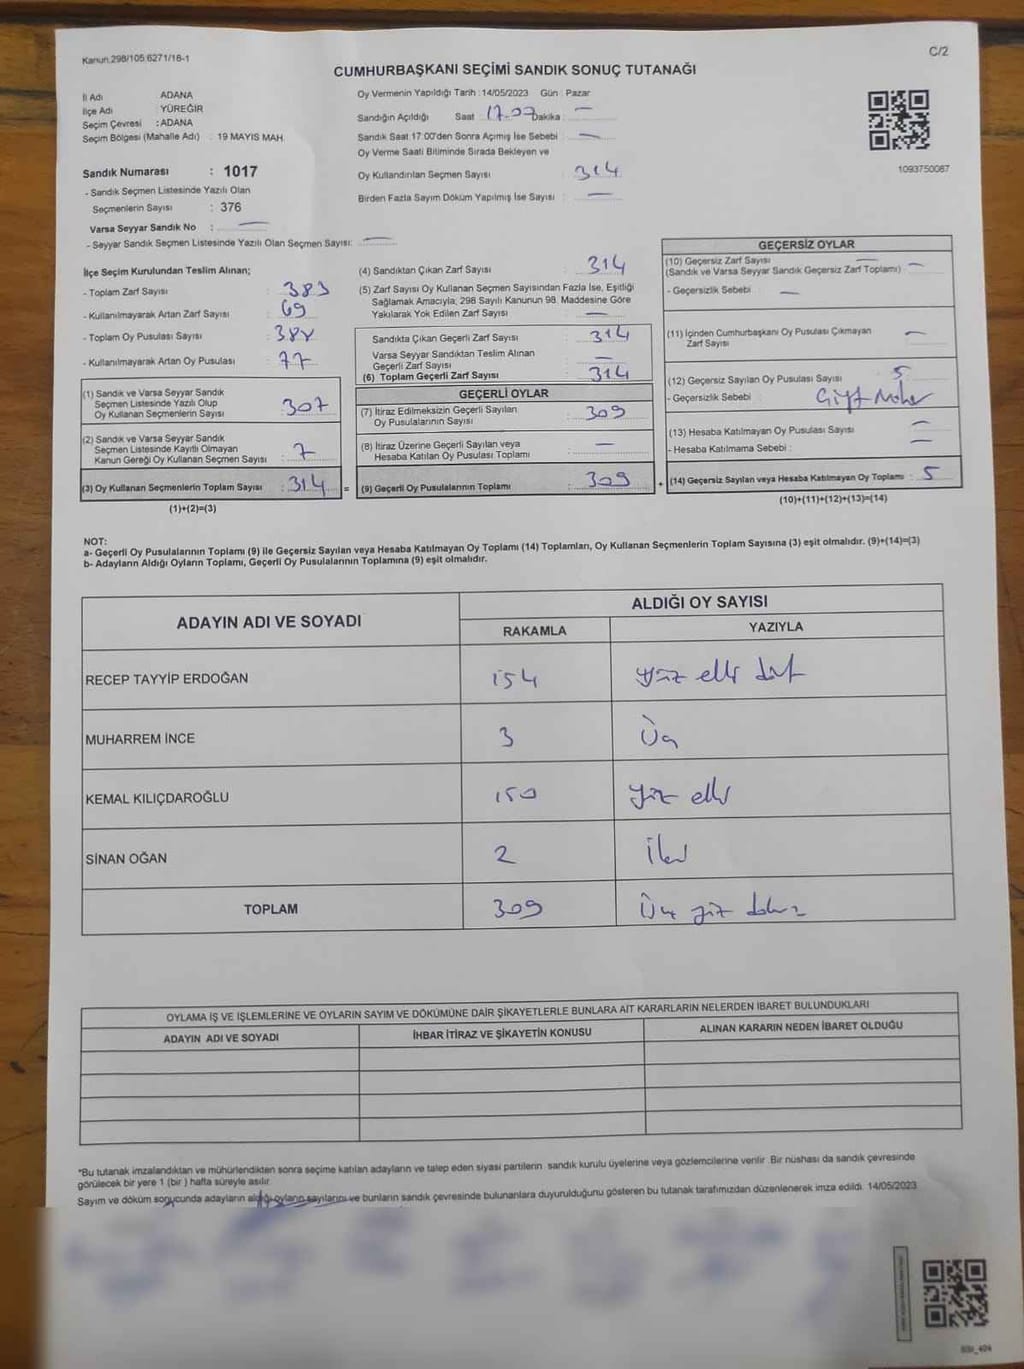 Kanun.298/105.6271/18-1
C/2
CUMHURBAŞKANI SEÇİMİ SANDIK SONUÇ TUTANAĞI
İl Adı ADANA
İlçe Adı YÜREĞİR
Seçim Çevresi : ADANA
Seçim Bölgesi (Mahalle Adı) : 19 MAYIS MAH.
Oy Vermenin Yapıldığı Tarih : 14/05/2023 Gün : Pazar
Sandığın Açıldığı Saat : 17.07 Dakika : —
Sandık Saat 17:00'den Sonra Açımış İse Sebebi : —
Oy Verme Saati Bitiminde Sırada Bekleyen ve
Oy Kullandırılan Seçmen Sayısı : 314
Birden Fazla Sayım Döküm Yapılmış İse Sayısı : —
1093750087
Sandık Numarası : 1017
- Sandık Seçmen Listesinde Yazılı Olan
Seçmenlerin Sayısı : 376
Varsa Seyyar Sandık No : —
- Seyyar Sandık Seçmen Listesinde Yazılı Olan Seçmen Sayısı: —
İlçe Seçim Kurulundan Teslim Alınan;
- Toplam Zarf Sayısı : 383
- Kullanılmayarak Artan Zarf Sayısı : 69
- Toplam Oy Pusulası Sayısı :
- Kullanılmayarak Artan Oy Pusulası : 77
(1) Sandık ve Varsa Seyyar Sandık
Seçmen Listesinde Yazılı Olup
Oy Kullanan Seçmenlerin Sayısı : 307
(2) Sandık ve Varsa Seyyar Sandık
Seçmen Listesinde Kayıtlı Olmayan
Kanun Gereği Oy Kullanan Seçmen Sayısı : 7
(3) Oy Kullanan Seçmenlerin Toplam Sayısı : 314 =
(1)+(2)=(3)
(4) Sandıktan Çıkan Zarf Sayısı : 314
(5) Zarf Sayısı Oy Kullanan Seçmen Sayısından Fazla İse, Eşitliği
Sağlamak Amacıyla, 298 Sayılı Kanunun 98. Maddesine Göre
Yakılarak Yok Edilen Zarf Sayısı : —
Sandıkta Çıkan Geçerli Zarf Sayısı : 314
Varsa Seyyar Sandıktan Teslim Alınan
Geçerli Zarf Sayısı : —
(6) Toplam Geçerli Zarf Sayısı : 314
GEÇERLİ OYLAR
(7) İtiraz Edilmeksizin Geçerli Sayılan
Oy Pusulalarının Sayısı : 309
(8) İtiraz Üzerine Geçerli Sayılan veya
Hesaba Katılan Oy Pusulası Toplamı : —
(9) Geçerli Oy Pusulalarının Toplamı : 309 +
GEÇERSİZ OYLAR
(10) Geçersiz Zarf Sayısı —
(Sandık ve Varsa Seyyar Sandık Geçersiz Zarf Toplamı) : —
- Geçersizlik Sebebi : —
(11) İçinden Cumhurbaşkanı Oy Pusulası Çıkmayan
Zarf Sayısı : —
(12) Geçersiz Sayılan Oy Pusulası Sayısı : 5
- Geçersizlik Sebebi : Çift Mühür
(13) Hesaba Katılmayan Oy Pusulası Sayısı : —
- Hesaba Katılmama Sebebi : —
(14) Geçersiz Sayılan veya Hesaba Katılmayan Oy Toplamı : 5
(10)+(11)+(12)+(13)=(14)
NOT:
a- Geçerli Oy Pusulalarının Toplamı (9) ile Geçersiz Sayılan veya Hesaba Katılmayan Oy Toplamı (14) Toplamları, Oy Kullanan Seçmenlerin Toplam Sayısına (3) eşit olmalıdır. (9)+(14)=(3)
b- Adayların Aldığı Oyların Toplamı, Geçerli Oy Pusulalarının Toplamına (9) eşit olmalıdır.
ADAYIN ADI VE SOYADI
ALDIĞI OY SAYISI
RAKAMLA YAZIYLA
RECEP TAYYİP ERDOĞAN 154 yüz elli dört
MUHARREM İNCE 3 Üç
KEMAL KILIÇDAROĞLU 150 yüz elli
SİNAN OĞAN 2 İki
TOPLAM 309 Üç yüz dokuz
OYLAMA İŞ VE İŞLEMLERİNE VE OYLARIN SAYIM VE DÖKÜMÜNE DAİR ŞİKAYETLERLE BUNLARA AİT KARARLARIN NELERDEN İBARET BULUNDUKLARI
ADAYIN ADI VE SOYADI İHBAR İTİRAZ VE ŞİKAYETİN KONUSU ALINAN KARARIN NEDEN İBARET OLDUĞU
*Bu tutanak imzalandıktan ve mühürlendikten sonra seçime katılan adayların ve talep eden siyasi partilerin sandık kurulu üyelerine veya gözlemcilerine verilir. Bir nüshası da sandık çevresinde
görülecek bir yere 1 (bir ) hafta süreyle asılır.
Sayım ve döküm sonucunda adayların aldığı oyların sayılarını ve bunların sandık çevresinde bulunanlara duyurulduğunu gösteren bu tutanak tarafımızdan düzenlenerek imza edildi. 14/05/2023